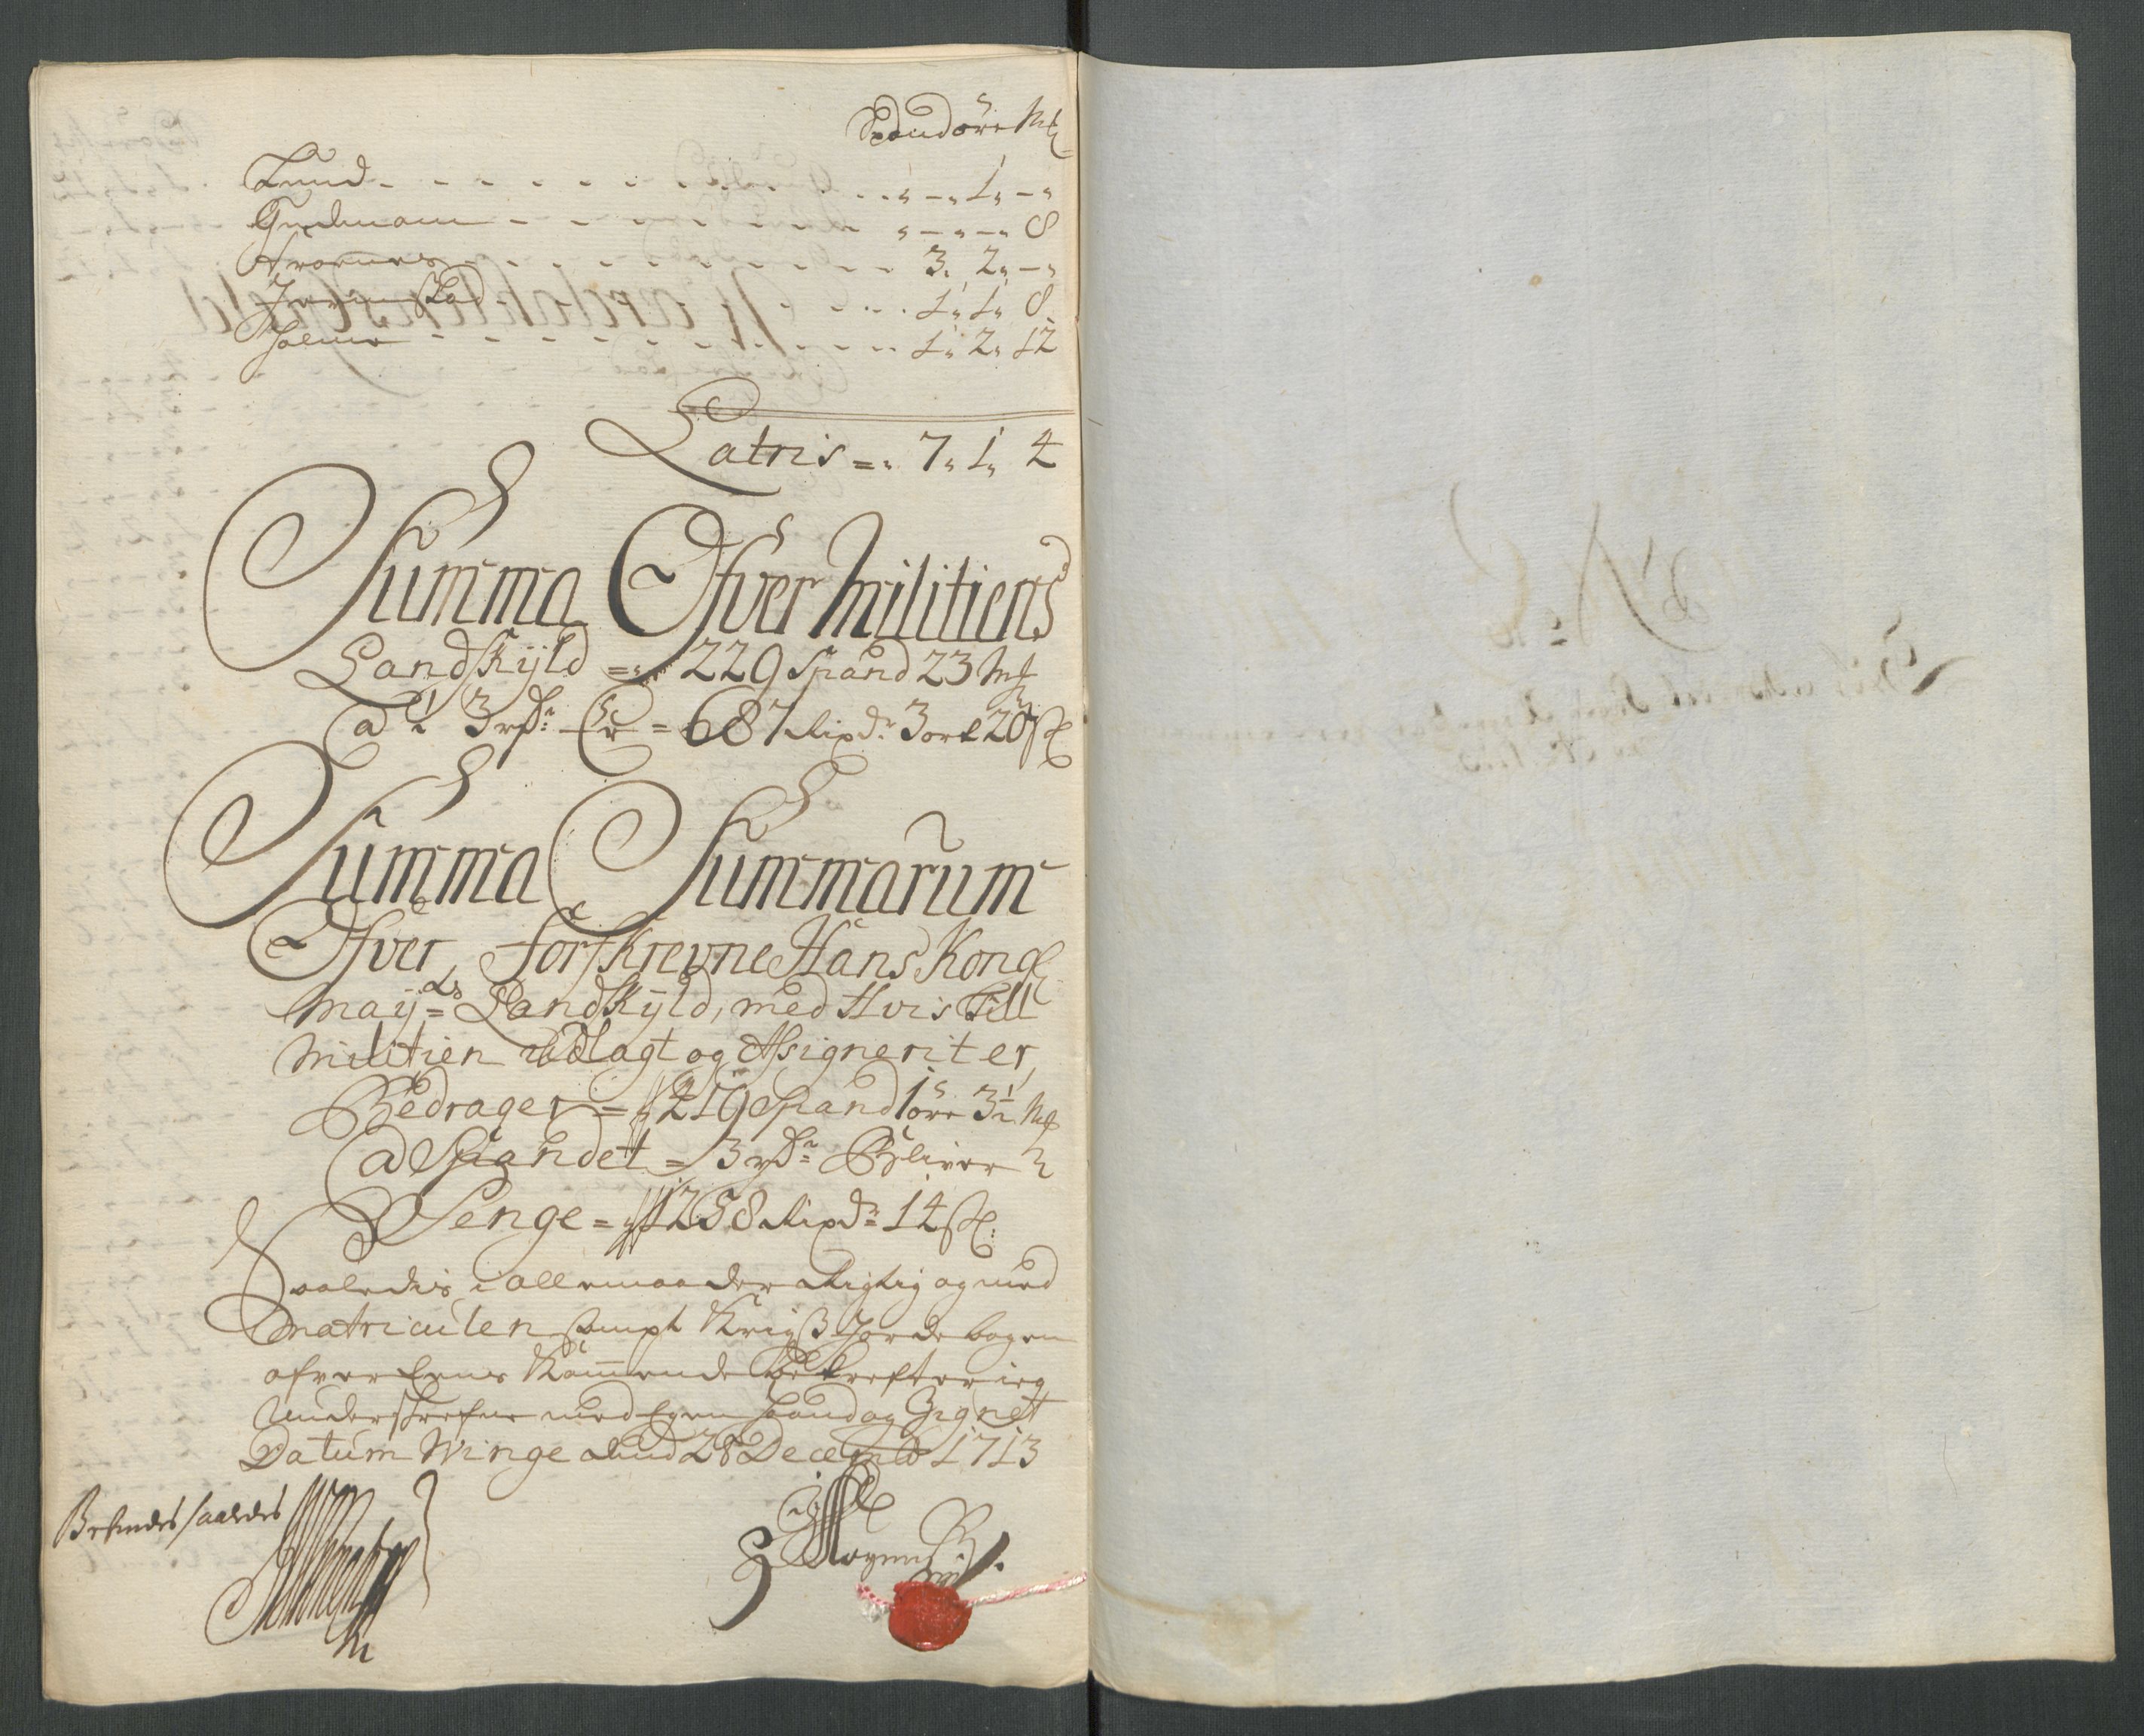 Spand öre M&
Lund - - - „ - „ 1 „ - „
Gudmoem - - - „ - „ - „ 8
- - - 3 „ 2 „ - „
- - - 1 „ 1 „ 8
Holme - - - 1 „ 2 „ 12
Latris = „ 7 „ 1 „ 4
Summa Ofver Militiens
Landskÿld = 229 Spand 23 M&
a 3 rdr Er = 687 Rixdr 3 ort 20 s
Summa Summarum
Ofver, forskrevne Hans Kongl
Maÿts Landskÿld, med Hvis Till
Militien udlagt og Assignerit er,
Bedrager = 419 Spand 1 öre 3½ M&
a Spandet = 3 rdr Bliver
Penge = 1258 Rixdr 14 s
Saaledis i alle maader Rigtig og med
Matriculen sampt Krigs Jordebogen
ofver Eens Kommende Bekrefter ieg
Underskrefne med Egen Haand og Zignet
Datum Winge dend 28 Decemb 1713
Befindes saaledes